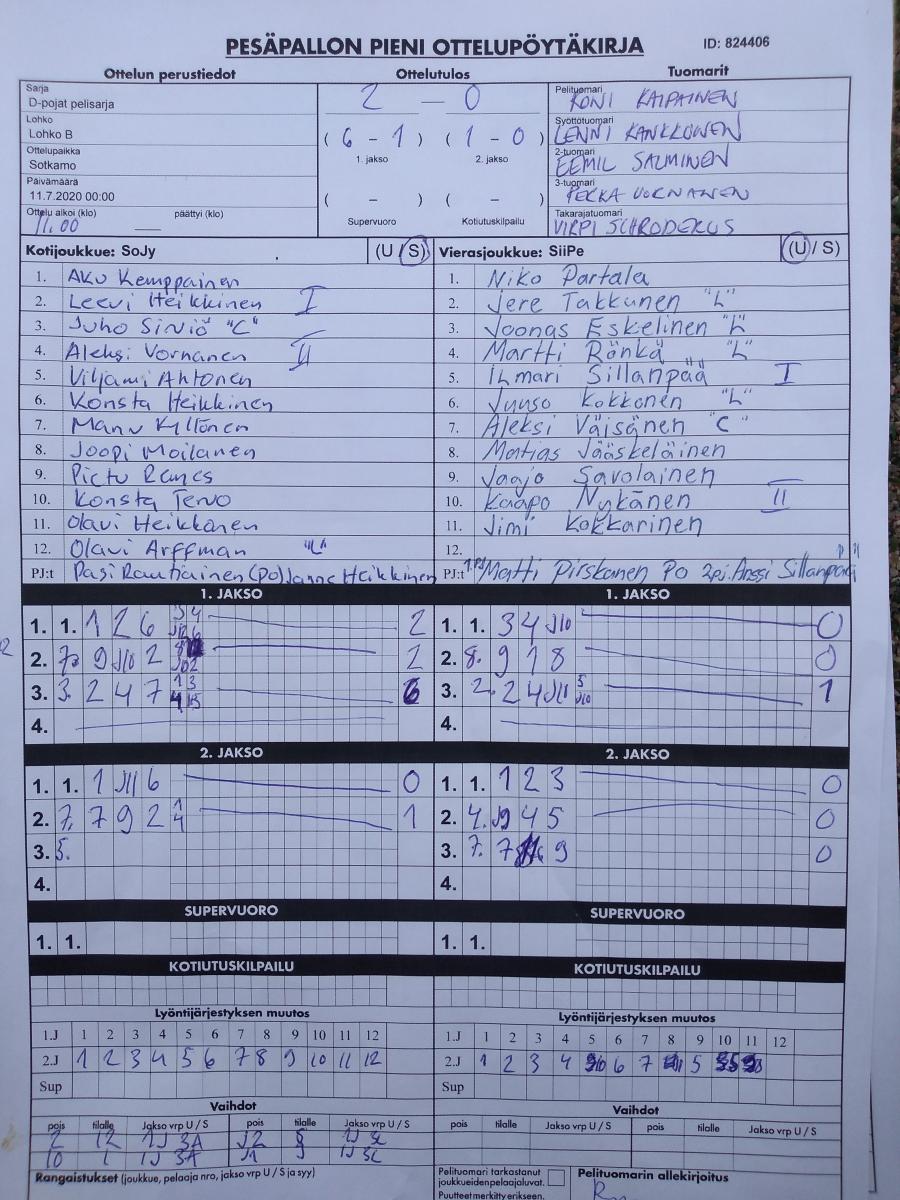 PESÄPALLON PIENI OTTELUPÖYTÄKIRJA ID: 824406
Ottelun perustiedot Ottelutulos Tuomarit
Sarja
D-pojat pelisarja
Lohko
Lohko B
Ottelupaikka
Sotkamo
Päivämäärä
11.7.2020 00:00
Ottelu alkoi (klo) päättyi (klo)
11.00
2 – 0
( 6 - 1 ) ( 1 - 0 )
1. jakso 2. jakso
( - ) ( - )
Supervuoro Kotiutuskilpailu
Pelituomari
RONI KAIPAINEN
Syöttötuomari
LENNI KANKKUNEN
2-tuomari
EEMIL SALMINEN
3-tuomari
PEKKA VORNANEN
Takarajatuomari
VIRPI SCHRODERUS
Kotijoukkue: SoJy (U / S)
1. Aku Kemppainen
2. Leevi Heikkinen I
3. Juho Sirviö "C"
4. Aleksi Vornanen II
5. Viljami Ahtonen
6. Konsta Heikkinen
7. Manu Kyllönen
8. Joopi Moilanen
9.
10. Konsta Tervo
11. Olavi Heikkanen
12. Olavi Arffman "L"
PJ:t Pasi Rautiainen (po) Janne Heikkinen
Vierasjoukkue: SiiPe (U / S)
1. Niko Partala
2. Jere Takkunen "L"
3. Joonas Eskelinen "L"
4. Martti Rönkä "L"
5. Ilmari Sillanpää I
6. Juuso Kokkonen "L"
7. Aleksi Väisänen "C"
8. Matias Jääskeläinen
9. Jaajo Savolainen
10. Kaapo Nykänen II
11. Jimi Kokkarinen
12.
PJ:t Matti Pirskanen Po 2pj. Anssi Sillanpää
1. JAKSO 1. JAKSO
1. 1. 1 2 6 2
2. 7. 9 J10 2 2
3. 3. 2 4 7 6
4.
1. 1. 3 4 J10 0
2. 8. 9 1 8 0
3. 2. 2 4 J11 5 J10 1
4.
2. JAKSO 2. JAKSO
1. 1. 1 J11 6 0
2. 7. 7 9 2 1 4 1
3. 5.
4.
1. 1. 1 2 3 0
2. 4. J9 4 5 0
3. 7. 7 9 0
4.
SUPERVUORO SUPERVUORO
1. 1. 1. 1.
KOTIUTUSKILPAILU KOTIUTUSKILPAILU
Lyöntijärjestyksen muutos
1.J 1 2 3 4 5 6 7 8 9 10 11 12
2.J 1 2 3 4 5 6 7 8 9 10 11 12
Sup
Lyöntijärjestyksen muutos
1.J 1 2 3 4 5 6 7 8 9 10 11 12
2.J 1 2 3 4 6 7 5
Sup
Vaihdot
pois tilalle Jakso vrp U / S pois tilalle Jakso vrp U / S
2 12 1J 3A J2
10 1 1J 3A J1
Vaihdot
pois tilalle Jakso vrp U / S pois tilalle Jakso vrp U / S
Rangaistukset (joukkue, pelaaja nro, jakso vrp U / S ja syy)
Pelituomari tarkastanut
joukkueidenpelaajaluvat.
Puutteet merkitty erikseen.
Pelituomarin allekirjoitus